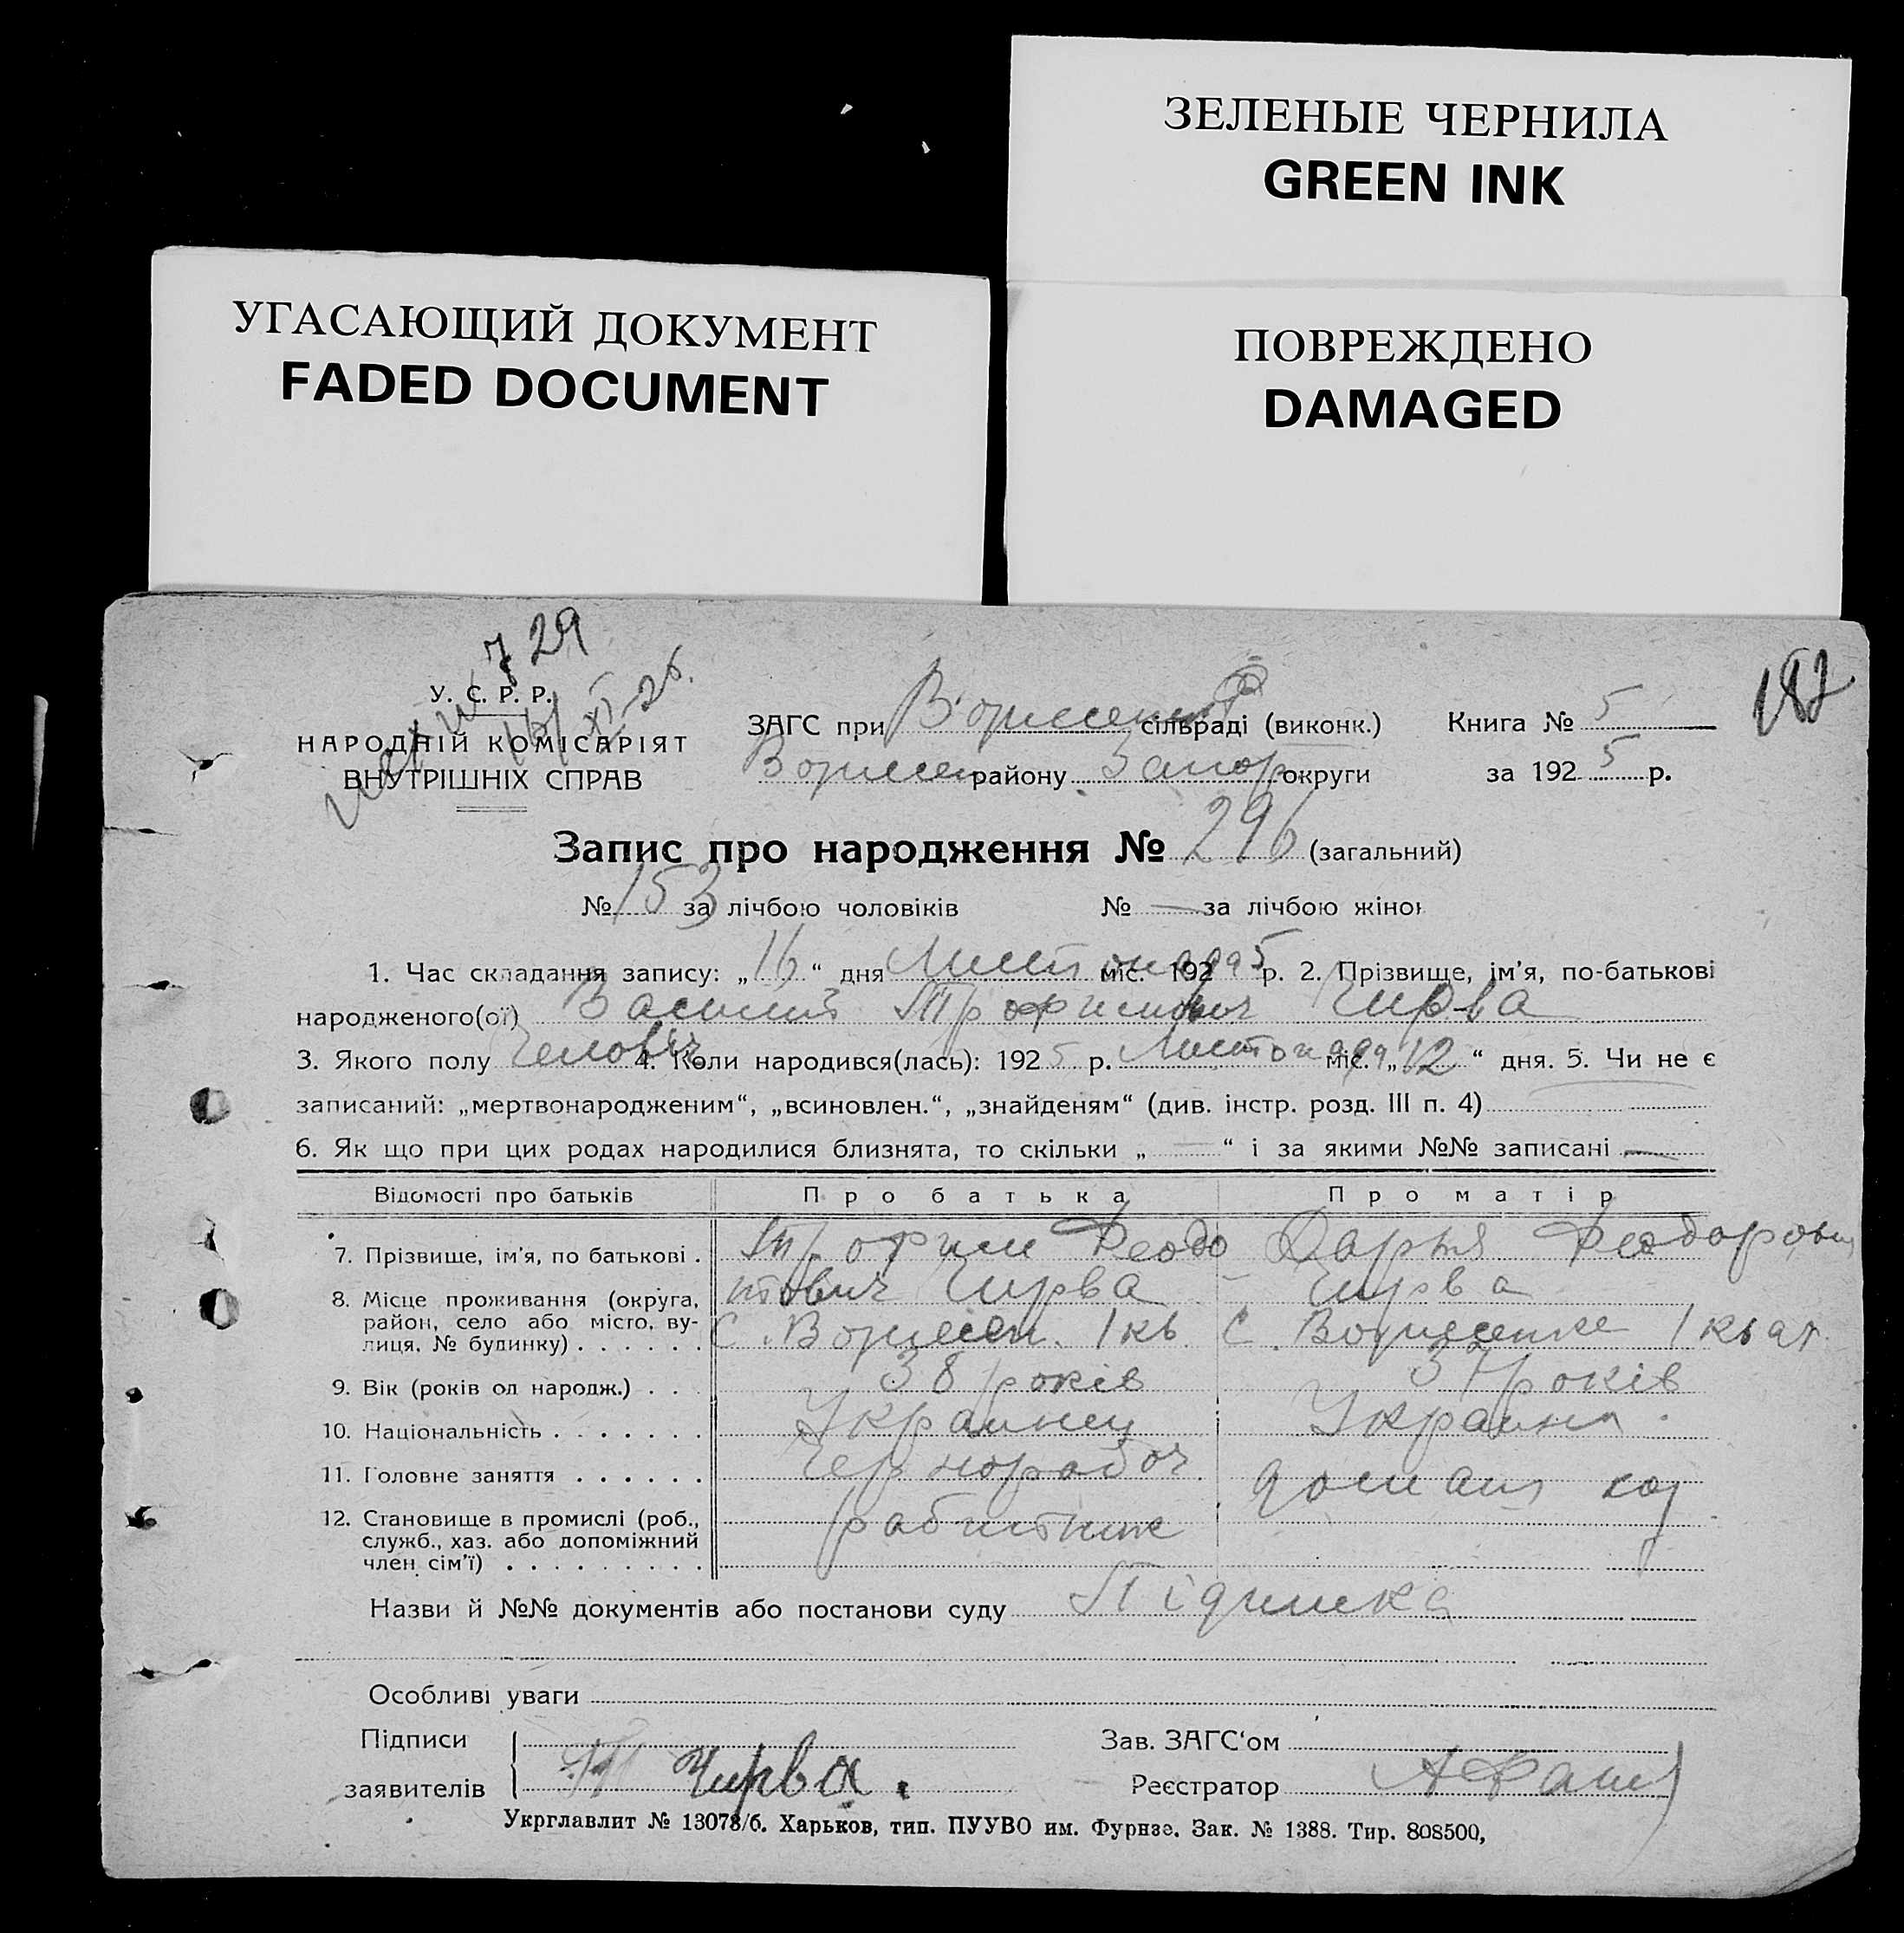 ЗЕЛЕНЫЕ ЧЕРНИЛА
GREEN INK
УГАСАЮЩИЙ ДОКУМЕНТ
FADED DOCUMENT
ПОВРЕЖДЕНО
DAMAGED
729
16/XI-26.
182
У. С. Р. Р.
НАРОДНІЙ КОМІСАРІЯТ
ВНУТРІШНІХ СПРАВ
ЗАГС при сільраді (виконк.) Книга № 5
району Запор. округи за 1925 р.
Запис про народження № 296 (загальний)
№ 153 за лічбою чоловіків № — за лічбою жінок
1. Час складання запису: „16“ дня Листопада міс. 1925 р. 2. Прізвище, ім’я, по-батькові
народженого(ої) Василий Трофимович Чирва
3. Якого полу Человіч 4. Коли народився(лась): 1925 р. Листопада міс. „12“ дня. 5. Чи не є
записаний: „мертвонародженим“, „всиновлен.“, „знайденям“ (див. інстр. розд. III п. 4)
6. Як що при цих родах народилися близнята, то скільки „—“ і за якими №№ записані —
Відомості про батьків Про батька Про матір
7. Прізвище, ім’я, по батькові . Трофим Феодо Дарья Феодоровна
тович Чирва Чирва
8. Місце проживання (округа,
район, село або місто, ву-
лиця, № будинку) . . . . . . с. Вознесен. 1 кв. с. Вознесенке 1 кварт.
9. Вік (років од народж.) . . . 38 років 37 років
10. Національність . . . . . . . Украинец Украинк.
11. Головне заняття . . . . . . Чернорабоч. домаш хоз
12. Становище в промислі (роб.,
служб., хаз. або допоміжний
член сім’ї) . . . . . . . . . рабитник
Назви й №№ документів або постанови суду Підписка
Особливі уваги
Підписи Зав. ЗАГС‘ом
заявителів Чирва. Реєстратор
Укрглавлит № 13073/б. Харьков, тип. ПУУВО им. Фурнзе. Зак. № 1388. Тир. 808500,